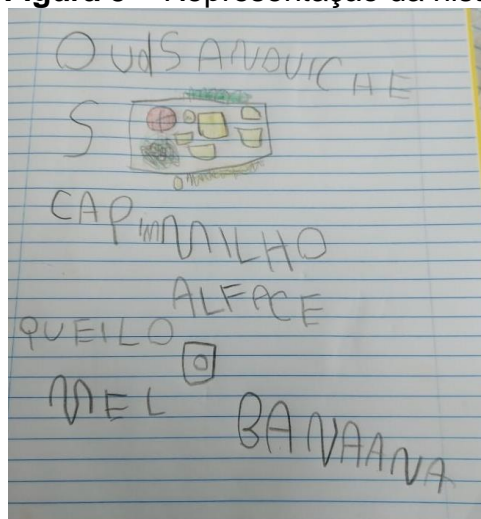 OUdSANDUICHE
S
CAPim MILHO
ALFACE
QUEILO
MEL
BANAANA